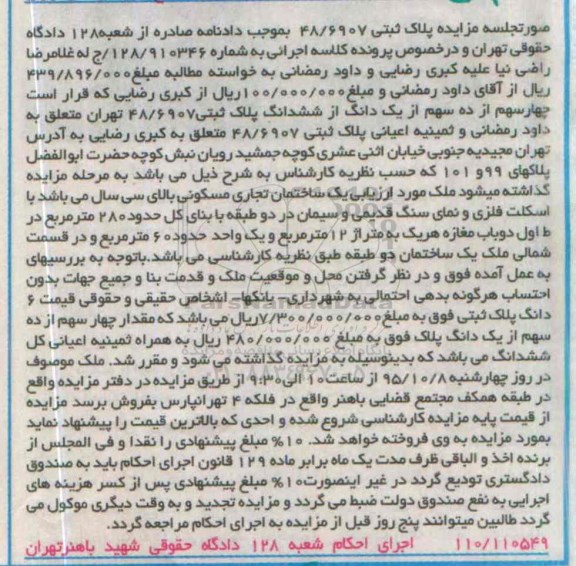 صورتجلسه مزایده پلاک ثبتی ۴۸/۶۹۰۷ بموجب دادنامه صادره از شعبه۱۲۸ دادگاه
حقوقی تهران و درخصوص پرونده کلاسه اجرائی به شماره ۱۲۸/۹۱۰۳۴۶/ج له غلامرضا
راضی نیا علیه کبری رضایی و داود رمضانی به خواسته مطالبه مبلغ۴۳۹/۸۹۶/۰۰۰
ریال از آقای داود رمضانی و مبلغ۱۰۰/۰۰۰/۰۰۰ریال از کبری رضایی که قرار است
چهارسهم از ده سهم از یک دانگ از ششدانگ پلاک ثبتی۴۸/۶۹۰۷ تهران متعلق به
داود رمضانی و ثمینیه اعیانی پلاک ثبتی ۴۸/۶۹۰۷ متعلق به کبری رضایی به آدرس
تهران مجیدیه جنوبی خیابان اثنی عشری کوچه جمشید رویان نبش کوچه حضرت ابوالفضل
پلاکهای ۹۹و ۱۰۱ که حسب نظریه کارشناس به شرح ذیل می باشد به مرحله مزایده
گذاشته میشود ملک مورد ارزیابی یک ساختمان تجاری مسکونی بالای سی سال می باشد با
اسکلت فلزی و نمای سنگ قدیمی و سیمان در دو طبقه با بنای کل حدود۲۸۰ مترمربع در
ط اول دوباب مغازه هریک به متراژ ۱۲مترمربع و یک واحد حدود۶۰ مترمربع و در قسمت
شمالی ملک یک ساختمان دو طبقه طبق نظریه کارشناسی می باشد.باتوجه به بررسیهای
به عمل آمده فوق و در نظر گرفتن محل و موقعیت ملک و قدمت بنا و جمیع جهات بدون
احتساب هرگونه بدهی احتمالی به شهرداری- بانکها- اشخاص حقیقی و حقوقی قیمت ۶
دانگ پلاک ثبتی فوق به مبلغ۷/۳۰۰/۰۰۰/۰۰۰ریال می باشد که مقدار چهار سهم از ده
سهم از یک دانگ پلاک فوق به مبلغ ۴۸۰/۰۰۰/۰۰۰ ریال به همراه ثمینیه اعیانی کل
ششدانگ می باشد که بدینوسیله به مزایده گذاشته می شود و مقرر شد. ملک موصوف
در روز چهارشنبه۹۵/۱۰/۸ از ساعت۱۰ الی۹:۳۰ از طریق مزایده در دفتر مزایده واقع
در طبقه همکف مجتمع قضایی باهنر واقع در فلکه ۴ تهرانپارس بفروش برسد مزایده
از قیمت پایه مزایده کارشناسی شروع شده و احدی که بالاترین قیمت را پیشنهاد نماید
بمورد مزایده به وی فروخته خواهد شد. ۱۰% مبلغ پیشنهادی را نقدا و فی المجلس از
برنده اخذ و الباقی ظرف مدت یک ماه برابر ماده ۱۲۹ قانون اجرای احکام باید به صندوق
دادگستری تودیع گردد در غیر اینصورت۱۰% مبلغ پیشنهادی پس از کسر هزینه های
اجرایی به نفع صندوق دولت ضبط می گردد و مزایده تجدید و به وقت دیگری موکول می
گردد طالبین میتوانند پنج روز قبل از مزایده به اجرای احکام مراجعه گردد.
۱۱۰/۱۱۰۵۴۹ اجرای احکام شعبه ۱۲۸ دادگاه حقوقی شهید باهنرتهران